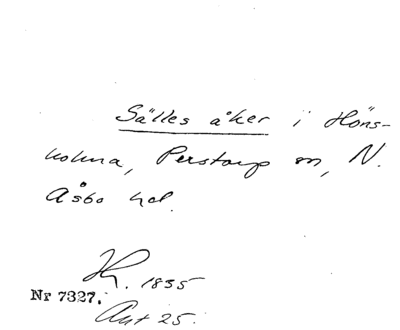 Sälles åker i Höns-
holma, Perstorp sn, N.
Åsbo hd.
1855
Nr 7327.
25.